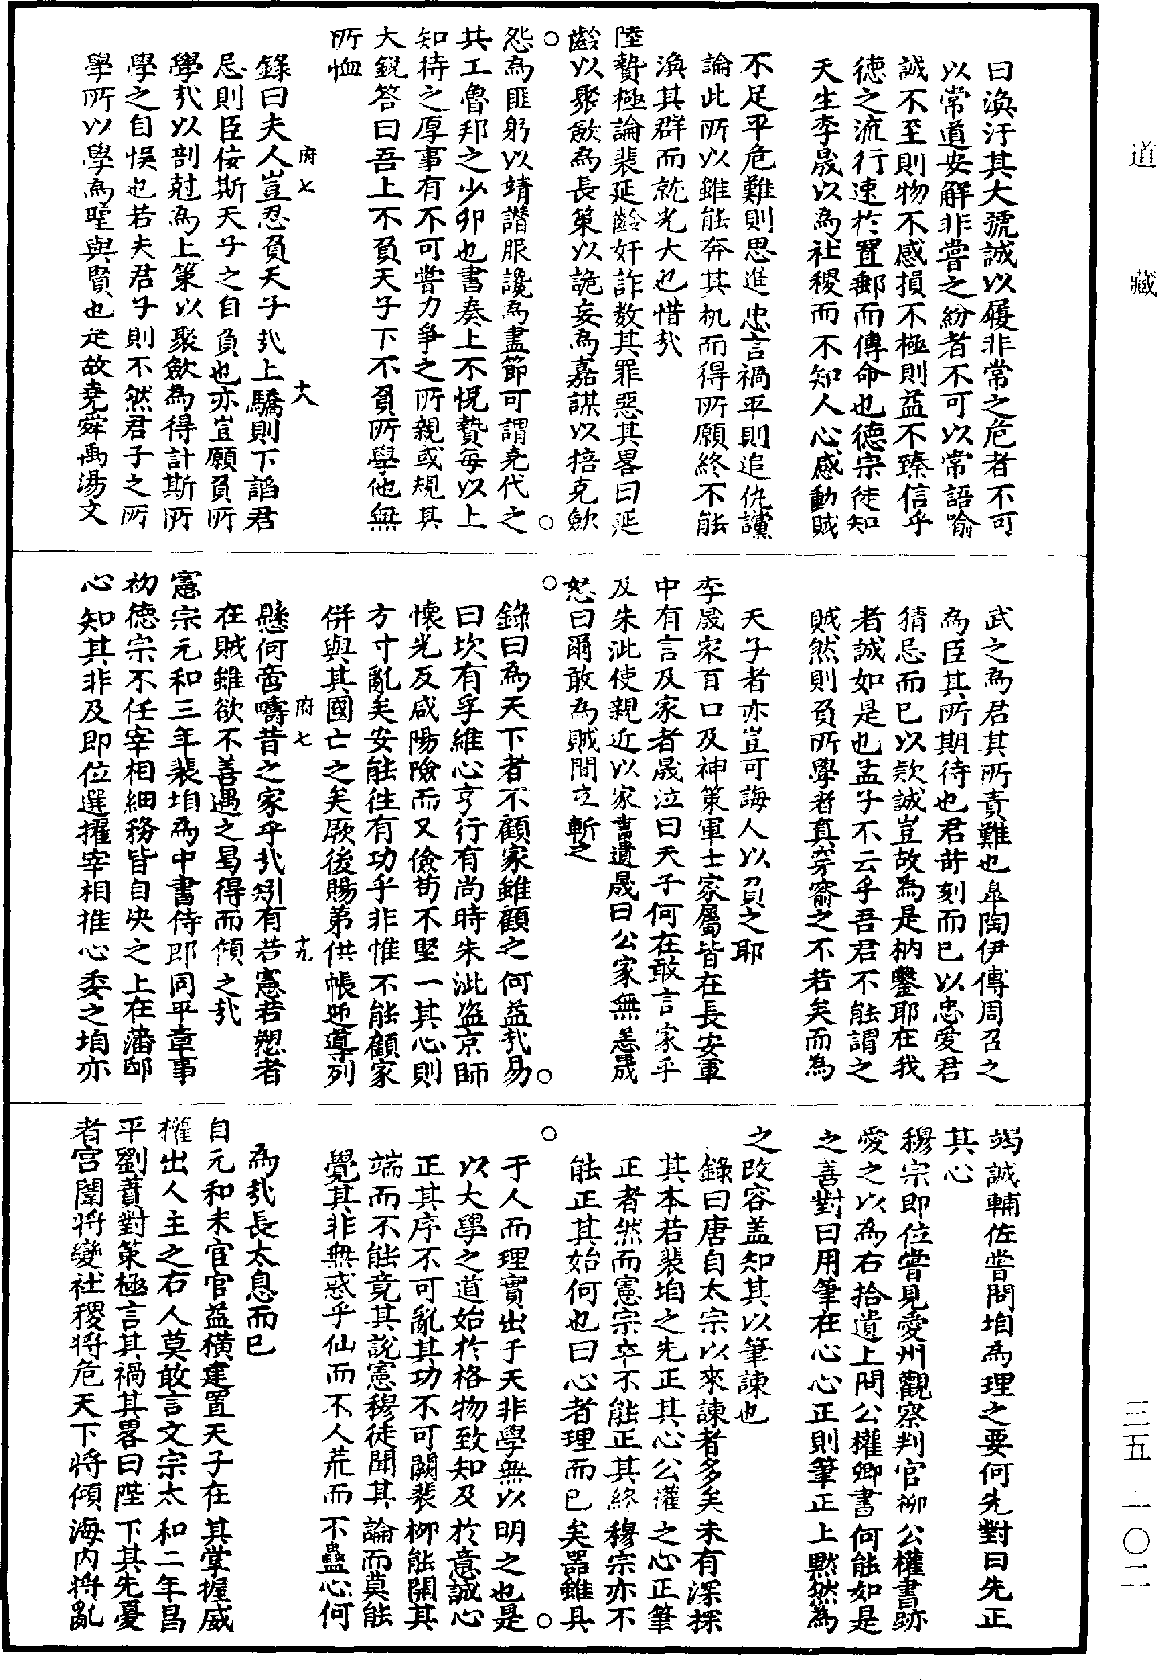 道藏
曰渙汙其大號誠以履非常之危者不可
以常道安解非嘗之紛者不可以常語喻
誠不至則物不感損不極則益不臻信乎
德之流行速於置郵而傳命也德宗徒知
天生李晟以為社稷而不知人心感動賊
不足平危難則思進忠言禍平則追仇讜
論此所以雖能奔其机而得所願終不能
渙其群而就光大也惜哉
陸贄極論裴延齡奸詐数其罪惡其畧曰延
齡以聚斂為長策以詭妄為嘉謀以掊克歛
怨為匪躬以靖譖服讒為盡節可謂堯代之
共工魯邦之少卯也書奏上不悅贄每以上
知待之厚事有不可嘗力爭之所親或規其
大銳答曰吾上不負天子下不負所學他無
所恤
錄曰夫人豈忍負天子哉上驕則下諂君
忌則臣佞斯天子之自負也亦豈願負所
學哉以剖尅為上策以聚斂為得計斯所
學之自悞也若夫君子則不然君子之所
學所以學為聖與賢也是故堯舜禹湯文
府七
大
武之為君其所責難也臯陶伊傅周召之
為臣其所期待也君苛刻而已以忠愛君
猜忌而已以欵誠豈故為是枘鑿耶在我
者誠如是也孟子不云乎吾君不能謂之
賊然則負所學者真穿窬之不若矣而為
天子者亦豈可誨人以負之耶
李晟家百口及神策軍士家屬皆在長安軍
中有言及家者晟泣曰天子何在敢言家乎
及朱泚使親近以家書遺晟曰公家無恙晟
怒曰爾敢為賊間立斬之
錄曰為天下者不顧家雖顧之何益哉易
曰坎有孚維心亨行有尚時朱泚盜京師
懷光反咸陽險而又儉苟不堅一其心則
方寸亂矣安能徃有功乎非惟不能顧家
併與其國亡之矣厥後賜第供帳迎導列
懸何啻疇昔之家乎哉矧有若憲若愬者
在賊雖欲不善遇之曷得而傾之哉
憲宗元和三年裴垍為中書侍郎同平章事
初德宗不任宰相細務皆自决之上在藩邸
心知其非及即位選擢宰相推心委之垍亦
府七
十九
竭誠輔佐嘗問垍為理之要何先對曰先正
其心
穆宗即位嘗見愛州觀察判官柳公權書跡
愛之以為右拾遺上問公權卿書何能如是
之善對曰用筆在心心正則筆正上黙然為
之改容盖知其以筆諫也
錄曰唐自太宗以來諫者多矣未有深探
其本若裴垍之先正其心公權之心正筆
正者然而憲宗卒不能正其終穆宗亦不
能正其始何也曰心者理而已矣噐雖具
于人而理實出于天非學無以明之也是
以大學之道始於格物致知及於意誠心
正其序不可亂其功不可闕裴柳能開其
端而不能竟其說憲穆徒聞其論而莫能
覺其非無惑乎仙而不人荒而不蠱心何
為哉長太息而已
自元和末宦官益橫建置天子在其掌握威
權出人主之右人莫敢言文宗太和二年昌
平劉蕡對策極言其禍其畧曰陛下其先憂
者宮闈將變社稷將危天下將傾海内將亂
三五-一〇二